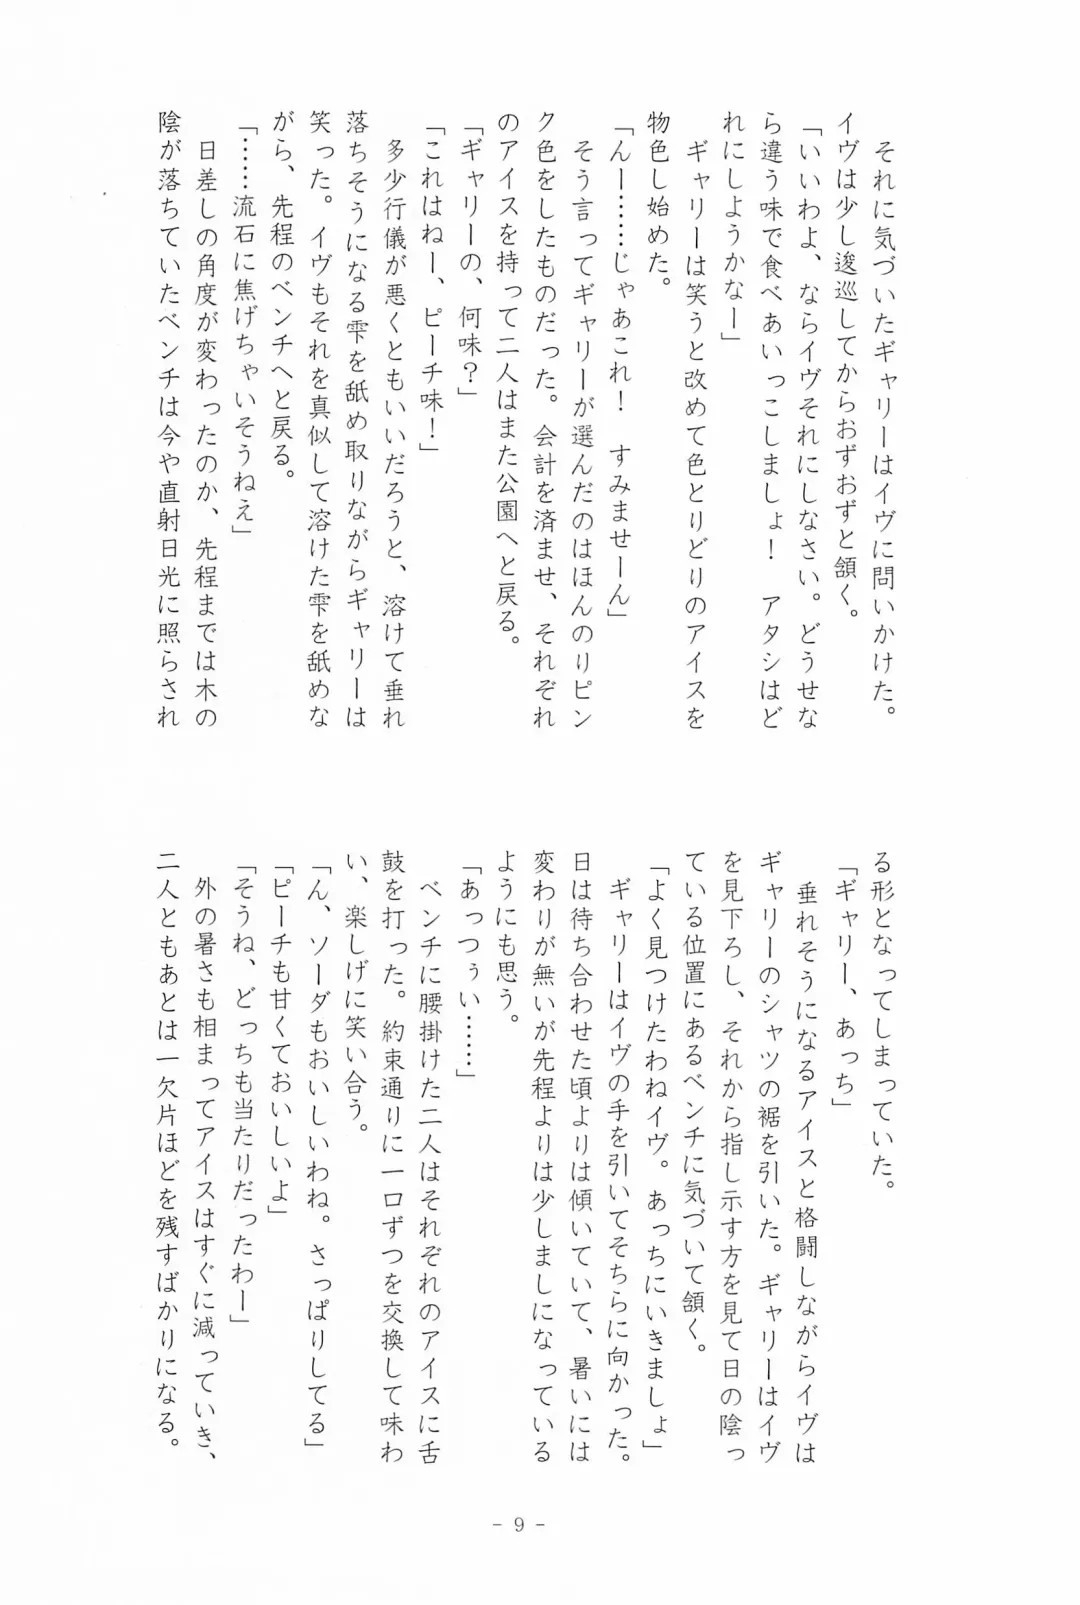 それに気づいたギャリーはイヴに問いかけた。
イヴは少し逡巡してからおずおずと頷く。
「いいわよ、ならイヴそれにしなさい。どうせな
ら違う味で食べあいっこしましょ！　アタシはど
れにしようかなー」
　ギャリーは笑うと改めて色とりどりのアイスを
物色し始めた。
「んー……じゃあこれ！　すみませーん」
　そう言ってギャリーが選んだのはほんのりピン
ク色をしたものだった。会計を済ませ、それぞれ
のアイスを持って二人はまた公園へと戻る。
「ギャリーの、何味？」
「これはねー、ピーチ味！」
　多少行儀が悪くともいいだろうと、溶けて垂れ
落ちそうになる雫を舐め取りながらギャリーは
笑った。イヴもそれを真似して溶けた雫を舐めな
がら、先程のベンチへと戻る。
「……流石に焦げちゃいそうねえ」
　日差しの角度が変わったのか、先程までは木の
陰が落ちていたベンチは今や直射日光に照らされ
る形となってしまっていた。
「ギャリー、あっち」
　垂れそうになるアイスと格闘しながらイヴは
ギャリーのシャツの裾を引いた。ギャリーはイヴ
を見下ろし、それから指し示す方を見て日の陰っ
ている位置にあるベンチに気づいて頷く。
「よく見つけたわねイヴ。あっちにいきましょ」
　ギャリーはイヴの手を引いてそちらに向かった。
日は待ち合わせた頃よりは傾いていて、暑いには
変わりが無いが先程よりは少しましになっている
ようにも思う。
「あっつぅい……」
　ベンチに腰掛けた二人はそれぞれのアイスに舌
鼓を打った。約束通りに一口ずつを交換して味わ
い、楽しげに笑い合う。
「ん、ソーダもおいしいわね。さっぱりしてる」
「ピーチも甘くておいしいよ」
「そうね、どっちも当たりだったわー」
　外の暑さも相まってアイスはすぐに減っていき、
二人ともあとは一欠片ほどを残すばかりになる。
- 9 -